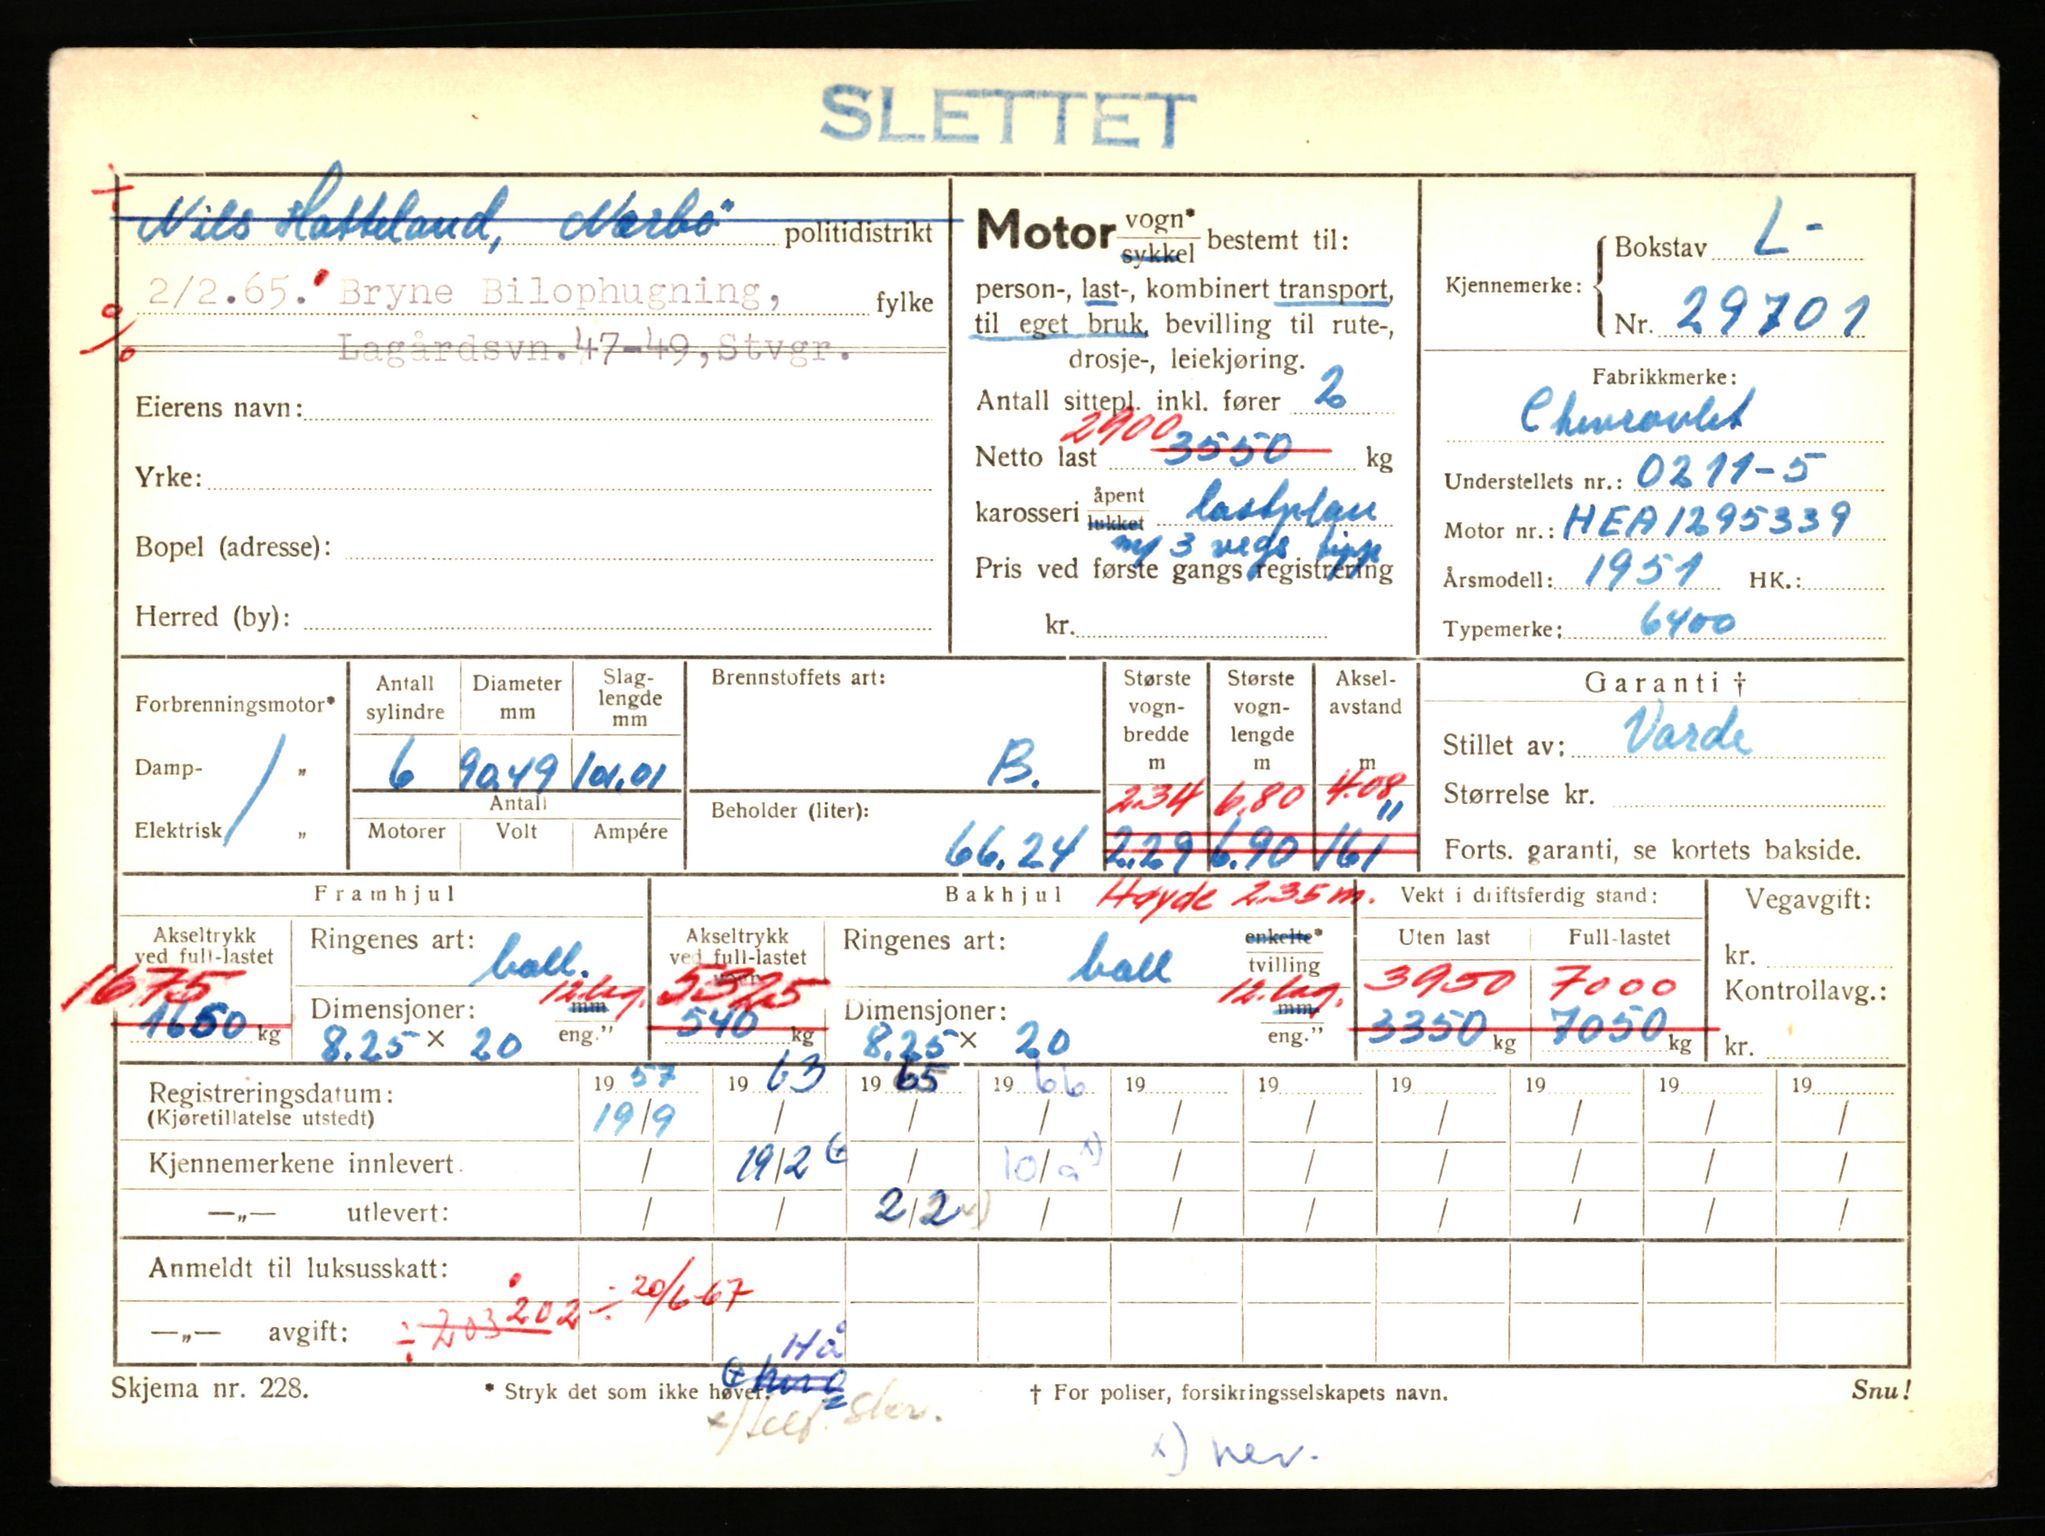 SLETTET
Nils Hatteland, Nærbø politidistrikt
2/2.65. Bryne Bilophugning, fylke
Lagårdsvn.47-49,Stvgr.
Eierens navn:
Yrke:
Bopel (adresse):
Herred (by):
Motor vogn* sykkel bestemt til:
person-, last-, kombinert transport,
til eget bruk, bevilling til rute-,
drosje-, leiekjøring.
Antall sittepl. inkl. fører 2
2900
Netto last 3550 kg
karosseri åpent lukket lastplan
m/ 3 vegs tipp
Pris ved første gangs registrering
kr.
Kjennemerke: Bokstav L-
Nr. 29701
Fabrikkmerke:
Chevrovlet
Understellets nr.: 0211-5
Motor nr.: HEA1295339
Årsmodell: 1951 HK.:
Typemerke: 6400
Forbrenningsmotor*
Damp- „
Elektrisk „
Antall sylindre
Diameter mm
Slaglengde mm
6 90.49 101.01
Antall
Motorer Volt Ampére
Brennstoffets art:
B.
Beholder (liter):
66.24
Største vognbredde m
Største vognlengde m
Akselavstand m
2.34 6.80 4.08
2.29 6.90 161"
Garanti †
Stillet av: Varde
Størrelse kr.
Forts. garanti, se kortets bakside.
Framhjul
Akseltrykk ved full-lastet
1675
1650 kg
Ringenes art: ball.
Dimensjoner: 12 lag. mm
8.25 × 20 eng."
Bakhjul Høyde 2.35 m.
Akseltrykk ved full-lastet vogn
5325
540 kg
Ringenes art: ball enkelte* tvilling
Dimensjoner: 12 lag. mm
8.25 × 20 eng."
Vekt i driftsferdig stand:
Uten last Full-lastet
3950 7000
3350 kg 7050 kg
Vegavgift:
kr.
Kontrollavg.:
kr.
Registreringsdatum: 19 57 19 63 19 65 19 66 19 19 19 19 19 19
(Kjøretillatelse utstedt) 19/9 / / / / / / / / /
Kjennemerkene innlevert. / 19/2 / 10/ x) / / / / / /
—„— utlevert: / / 2/2 x) / / / / / / /
Anmeldt til luksusskatt:
—„— avgift: ÷ 203 202 ÷ 20/6-67
Hå
Skjema nr. 228. * Stryk det som ikke høver. † For poliser, forsikringsselskapets navn. Snu!
x)
x)